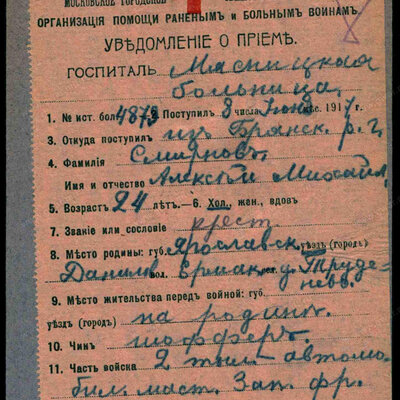 МОСКОВСКОЕ ГОРОДСКОЕ
ОРГАНИЗАЦІЯ ПОМОЩИ РАНЕНЫМЪ и БОЛЬНЫМЪ ВОИНАМЪ.
УВѢДОМЛЕНІЕ О ПРІЕМѢ.
ГОСПИТАЛЬ Мясницкая
больница
1. № ист. бол. 4879 Поступил 8 числа Іюня мѣс. 1917 г.
3. Откуда поступил из Брянск. р. г.
4. Фамилія Смирновъ
Имя и отчество Алексѣй Михайл.
5. Возраст 24 лѣт.—6. Хол., жен., вдов
7. Званіе или сословіе крест
8. Мѣсто родины: губ. Ярославск. уѣзд (город)
Данилв вол. Ермак. д. Труде-
невв.
9. Мѣсто жительства перед войной: губ.
уѣзд (город) на родин.
10. Чин шофферъ.
11. Часть войска 2 тыл. автомо-
бил. маст. Зап. фр.